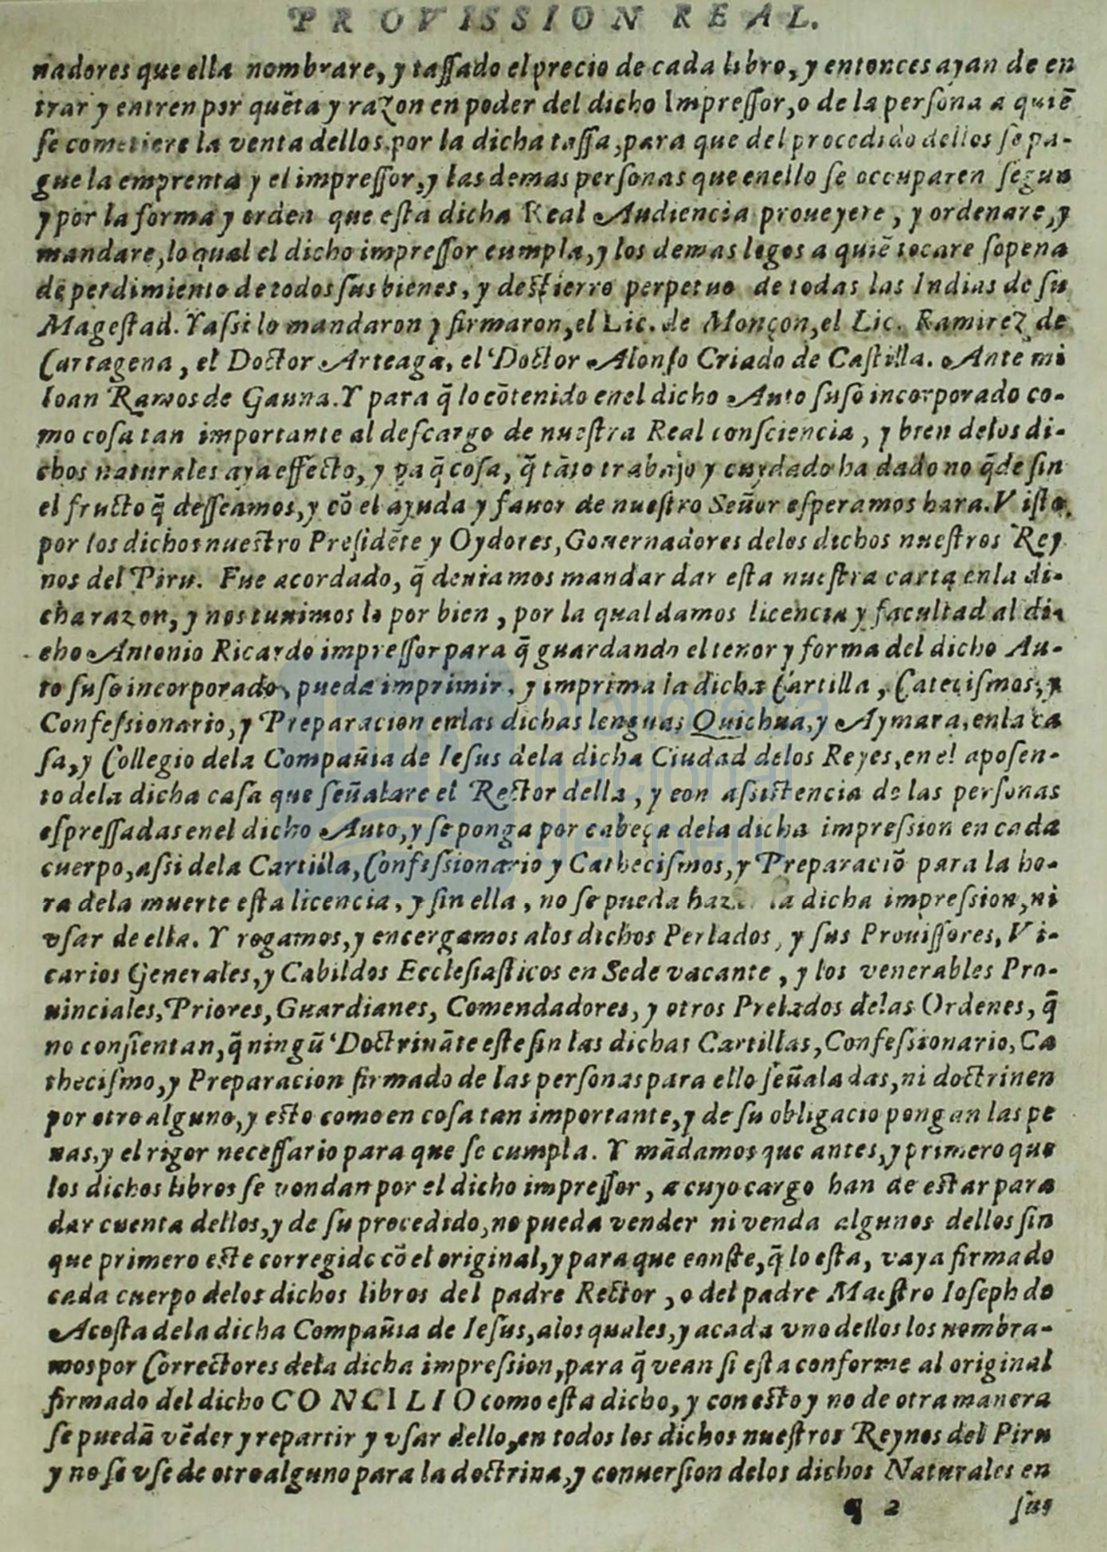 PROVISSION REAL.
nadores que ella nombrare, y tassado el precio de cada libro, y entonces ayan de en
trar y entren por quẽta y razon en poder del dicho Impressor, o de la persona a quiẽ
se cometiere la venta dellos, por la dicha tassa, para que del procedido dellos se pa-
gue la emprenta y el impressor, y las demas personas que enello se occuparen segun
y por la forma y orden que esta dicha Real Audiencia proueyere, y ordenare, y
mandare, lo qual el dicho impressor cumpla, y los demas legos a quiẽ tocare sopena
de perdimiento de todos sus bienes, y destierro perpetuo de todas las Indias de su
Magestad. Y assi lo mandaron y firmaron, el Lic. de Monçon, el Lic. Ramirez de
Cartagena, el Doctor Arteaga, el Doctor Alonso Criado de Castilla. Ante mi
Ioan Ramos de Gauna. Y para q̃ lo cõtenido enel dicho Auto suso incorporado co-
mo cosa tan importante al descargo de nuestra Real consciencia, y bien delos di-
chos naturales aya effecto, y pa q̃ cosa, q̃ tãto trabajo y cuydado ha dado no q̃de sin
el fructo q̃ desseamos, y cõ el ayuda y fauor de nuestro Señor esperamos hara. Visto,
por los dichos nuestro Presidẽte y Oydores, Gouernadores delos dichos nuestros Rey
nos del Piru. Fue acordado, q̃ deuiamos mandar dar esta nuestra carta enla di-
cha razon, y nos tuuimos lo por bien, por la qual damos licencia y facultad al di-
cho Antonio Ricardo impressor para q̃ guardando el tenor y forma del dicho Au-
to suso incorporado, pueda imprimir, y imprima la dicha Cartilla, Catecismos, y
Confessionario, y Preparacion enlas dichas lenguas Quichua, y Aymara, enla ca
sa, y Collegio dela Compañia de Iesus dela dicha Ciudad delos Reyes, enel aposen-
to dela dicha casa que señalare el Rector della, y con assistencia de las personas
espressadas enel dicho Auto, y se ponga por cabeça dela dicha impression en cada
cuerpo, assi dela Cartilla, Confessionario y Cathecismos, y Preparaciõ para la ho-
ra dela muerte esta licencia, y sin ella, no se pueda haz la dicha impression, ni
vsar de ella. Y rogamos, y encergamos alos dichos Perlados, y sus Prouissores, Vi-
carios Generales, y Cabildos Ecclesiasticos en Sede vacante, y los venerables Pro-
uinciales, Priores, Guardianes, Comendadores, y otros Prelados delas Ordenes, q̃
no consientan, q̃ ningũ Doctrinãte este sin las dichas Cartillas, Confessionario, Ca
thecismo, y Preparacion firmado de las personas para ello señaladas, ni doctrinen
por otro alguno, y esto como en cosa tan importante, y de su obligacio pongan las pe
nas, y el rigor necessario para que se cumpla. Y mãdamos que antes, y primero que
los dichos libros se vendan por el dicho impressor, a cuyo cargo han de estar para
dar cuenta dellos, y de su procedido, no pueda vender ni venda algunos dellos sin
que primero este corregido cõ el original, y para que conste, q̃ lo esta, vaya firmado
cada cuerpo delos dichos libros del padre Rector, o del padre Maestro Ioseph de
Acosta dela dicha Compañia de Iesus, alos quales, y a cada vno dellos los nombra-
mos por Correctores dela dicha impression, para q̃ vean si esta conforme al original
firmado del dicho CONCILIO como esta dicho, y con esto y no de otra manera
se puedã vẽder y repartir y vsar dello, en todos los dichos nuestros Reynos del Piru
y no se vse de otro alguno para la doctrina, y conuersion delos dichos Naturales en
q 2 sus